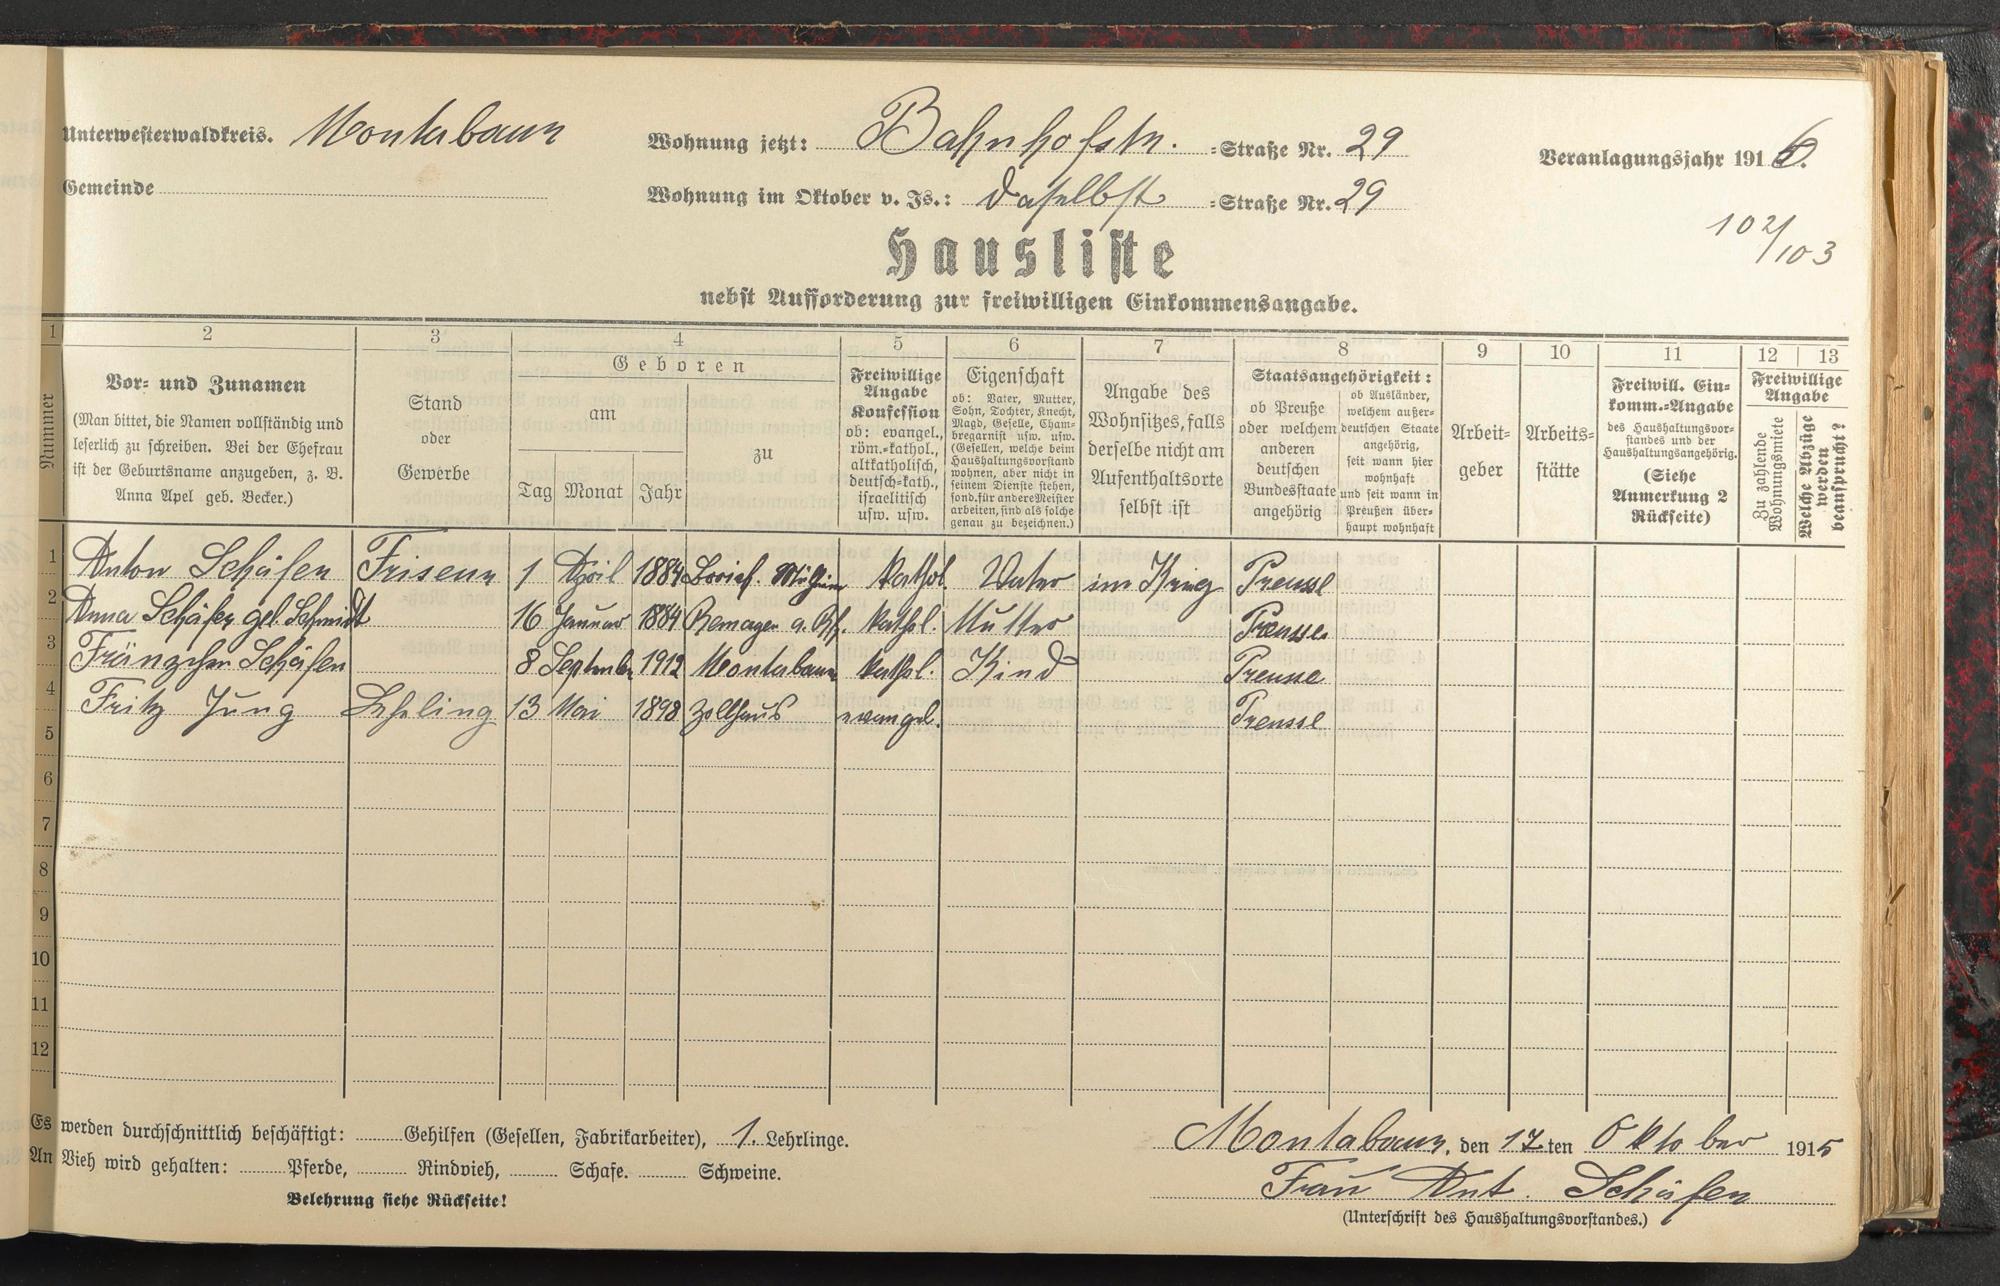 Unterwesterwaldkreis. Montabaur
Gemeinde
Wohnung jetzt: Bahnhofstr. =Straße Nr. 29
Wohnung im Oktober v. Js.: daselbst =Straße Nr. 29
Veranlagungsjahr 1916.
102/103
Hausliste
nebst Aufforderung zur freiwilligen Einkommensangabe.
1 2 3 4 5 6 7 8 9 10 11 12 13
Nummer
Vor- und Zunamen
(Man bittet, die Namen vollständig und
leserlich zu schreiben. Bei der Ehefrau
ist der Geburtsname anzugeben, z. B.
Anna Apel geb. Becker.)
Stand
oder
Gewerbe
Geboren
am
Tag Monat Jahr
zu
Freiwillige
Angabe
Konfession
ob: evangel.,
röm.-kathol.,
altkatholisch,
deutsch-kath.,
israelitisch
usw. usw.
Eigenschaft
ob: Vater, Mutter,
Sohn, Tochter, Knecht,
Magd, Geselle, Cham-
bregarnist usw. usw.
(Gesellen, welche beim
Haushaltungsvorstand
wohnen, aber nicht in
seinem Dienste stehen,
sond. für andere Meister
arbeiten, sind als solche
genau zu bezeichnen.)
Angabe des
Wohnsitzes, falls
derselbe nicht am
Aufenthaltsorte
selbst ist
Staatsangehörigkeit:
ob Preuße
oder welchem
anderen
deutschen
Bundesstaate
angehörig
ob Ausländer,
welchem außer-
deutschen Staate
angehörig,
seit wann hier
wohnhaft
und seit wann in
Preußen über-
haupt wohnhaft
Arbeit-
geber
Arbeits-
stätte
Freiwill. Ein-
komm.-Angabe
des Haushaltungsvor-
standes und der
Haushaltungsangehörig.
(Siehe
Anmerkung 2
Rückseite)
Freiwillige
Angabe
Zu zahlende
Wohnungsmiete
Welche Abzüge
werden
beansprucht?
1 Anton Schäfer Friseur 1 April 1884 kathol Vater im Krieg Preusse
2 Anna Schäfer geb. Schmidt 16 Januar 1884 Remagen a. Rh. kathol. Mutter Preusse
3 Fränzchen Schäfer 8 September 1912 Montabaur kathol. Kind Preusse
4 Fritz Jung Lehrling 13 Mai 1898 Zollhaus evangel. Preusse
5
6
7
8
9
10
11
12
Es werden durchschnittlich beschäftigt: Gehilfen (Gesellen, Fabrikarbeiter), 1. Lehrlinge.
An Vieh wird gehalten: Pferde, Rindvieh, Schafe. Schweine.
Belehrung siehe Rückseite!
Montabaur, den 17 ten Oktober 1915
Frau Ant. Schäfer
(Unterschrift des Haushaltungsvorstandes.)